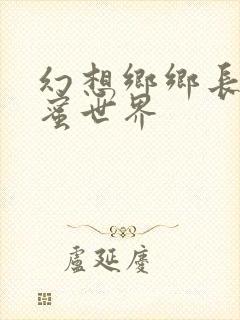 幻想鄉鄉長
蜜世界
盧延慶